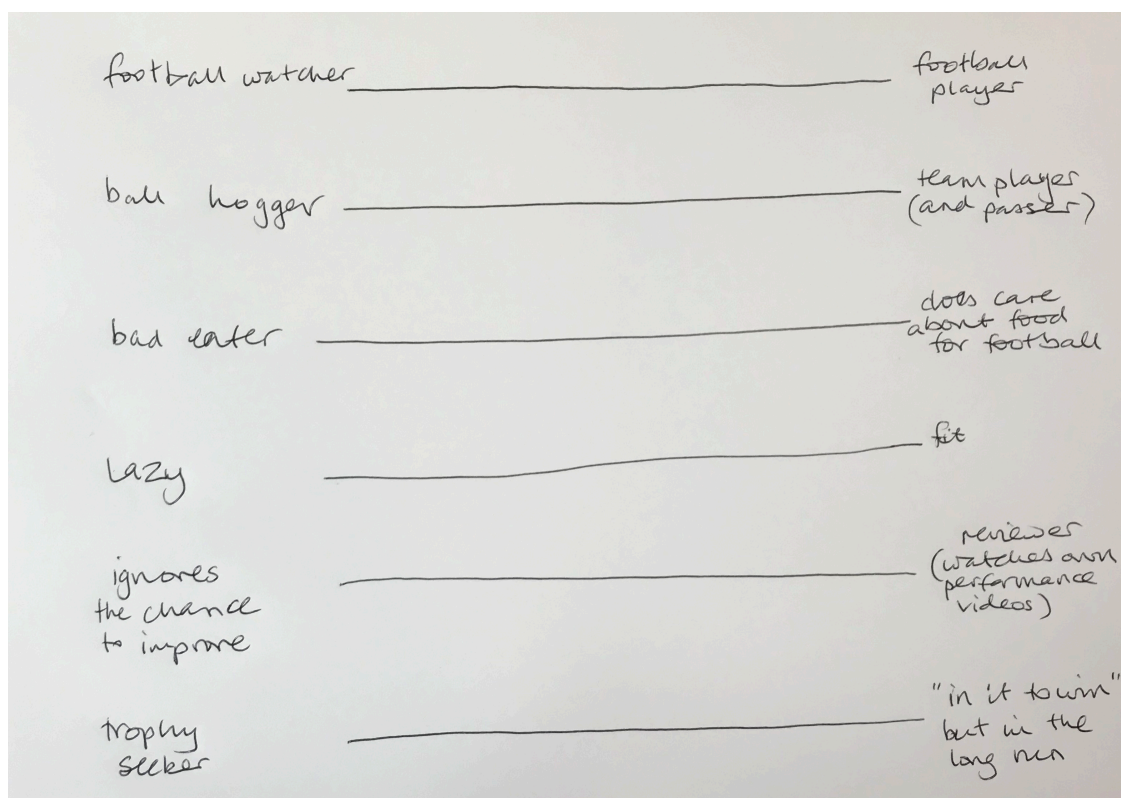 football watcher
football
player
ball hogger
team player
(and passer)
bad eater
does care
about food
for football
lazy
fit
ignores
the chance
to improve
reviewer
(watches own
performance
videos)
trophy
seeker
"in it to win"
but in the
long run